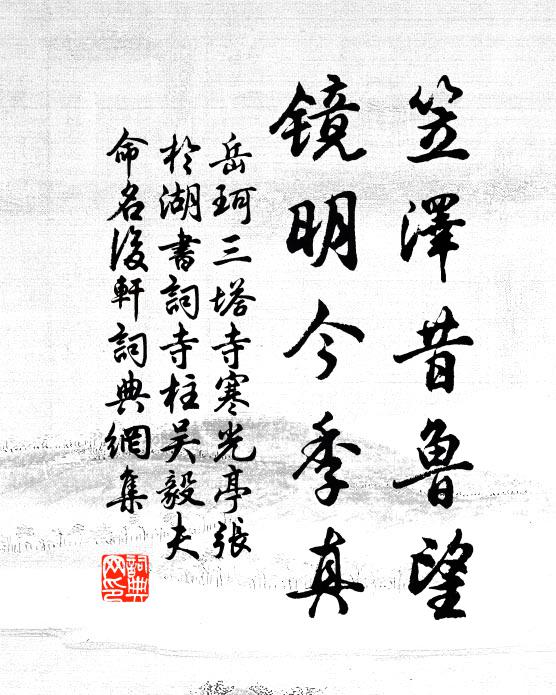 笠澤昔魯望
鏡明今季真
岳珂三塔寺寒光亭張
於湖書詞寺柱吴毅夫
命名後軒詞典網集
詞典
网印